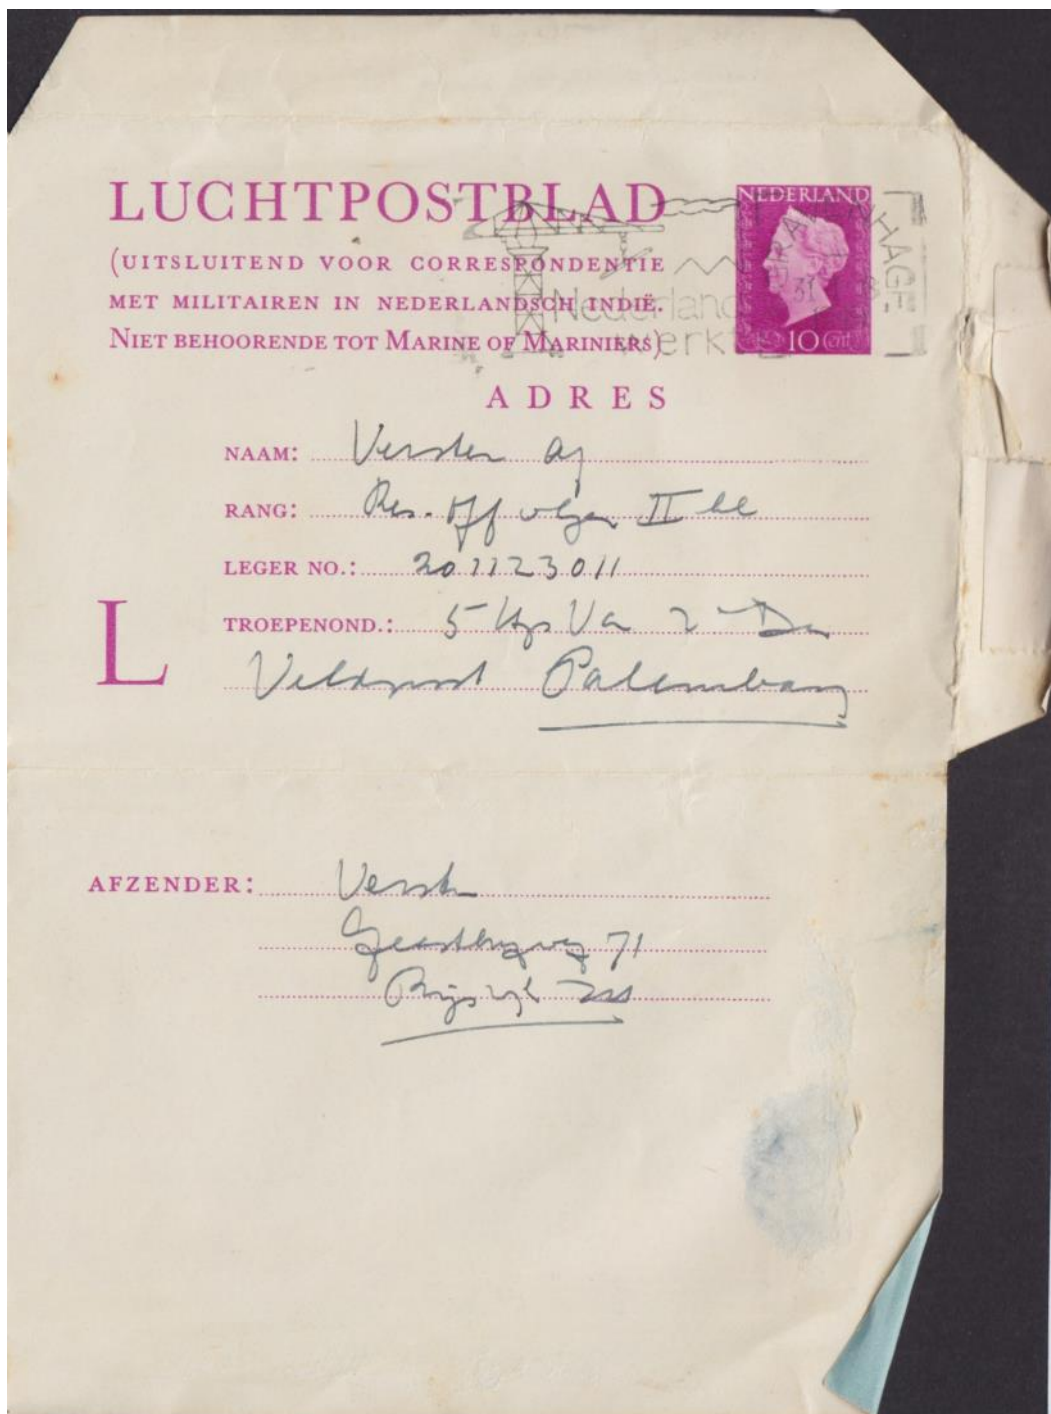 LUCHTPOSTBLAD
(UITSLUITEND VOOR CORRESPONDENTIE
MET MILITAIREN IN NEDERLANDSCH INDIË.
NIET BEHOORENDE TOT MARINE OF MARINIERS)
NEDERLAND
10 Cent
'S GRAVENHAGE
31
Nederland
werkt
ADRES
NAAM: Verster AJ
RANG: Res. Off II kl
LEGER NO.: 201123011
L
TROEPENOND.: 5 Va 2
Veldpost Palembang
AFZENDER: Verster
Geestbrugweg 71
Rijswijk ZH